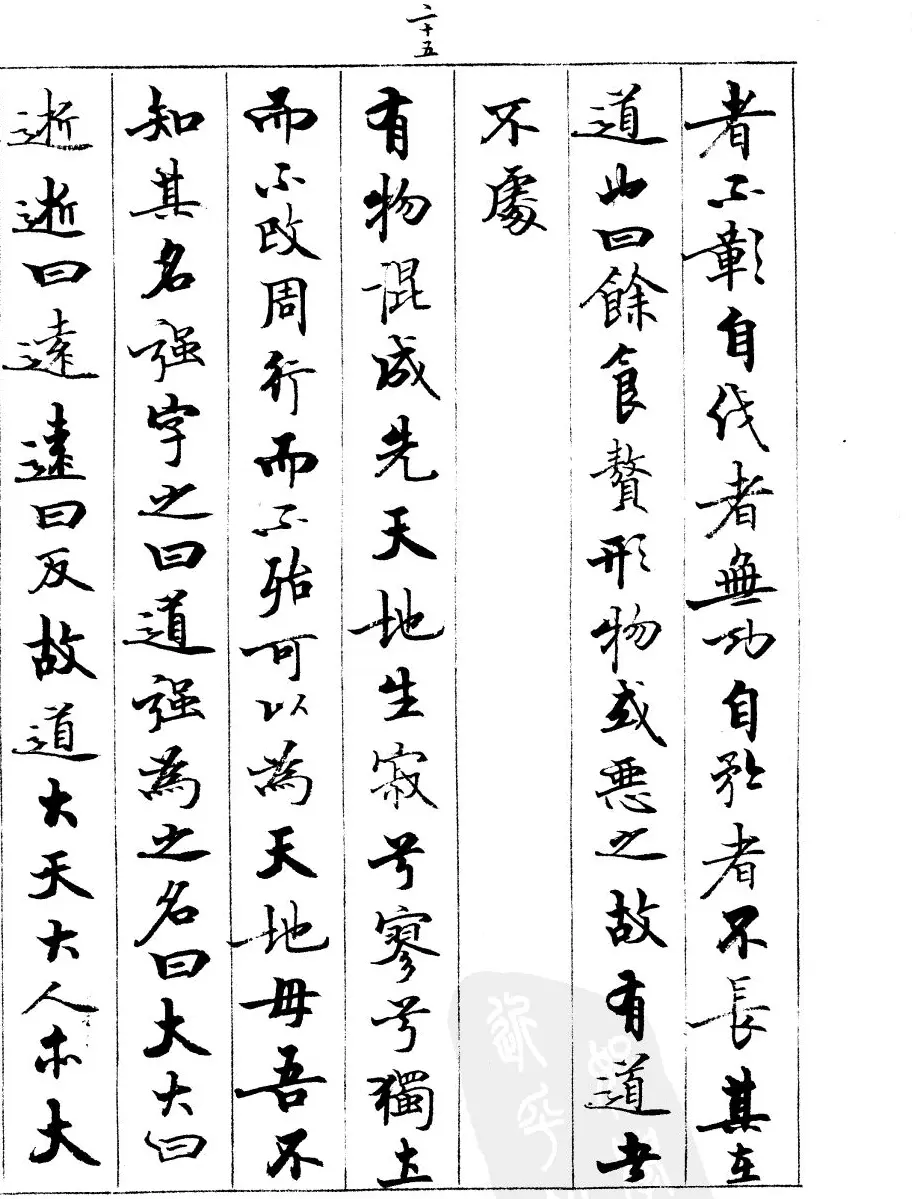 二十五
者不彰自伐者無功自矜者不長其在
道也曰餘食贅形物或悪之故有道者
不處
有物混成先天地生寂兮寥兮獨立
而不改周行而不殆可以為天地母吾不
知其名强字之曰道强為之名曰大大曰
逝逝曰遠遠曰反故道大天大人亦大